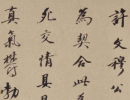 許文穆公
為契合此
死交情具
真氣勃